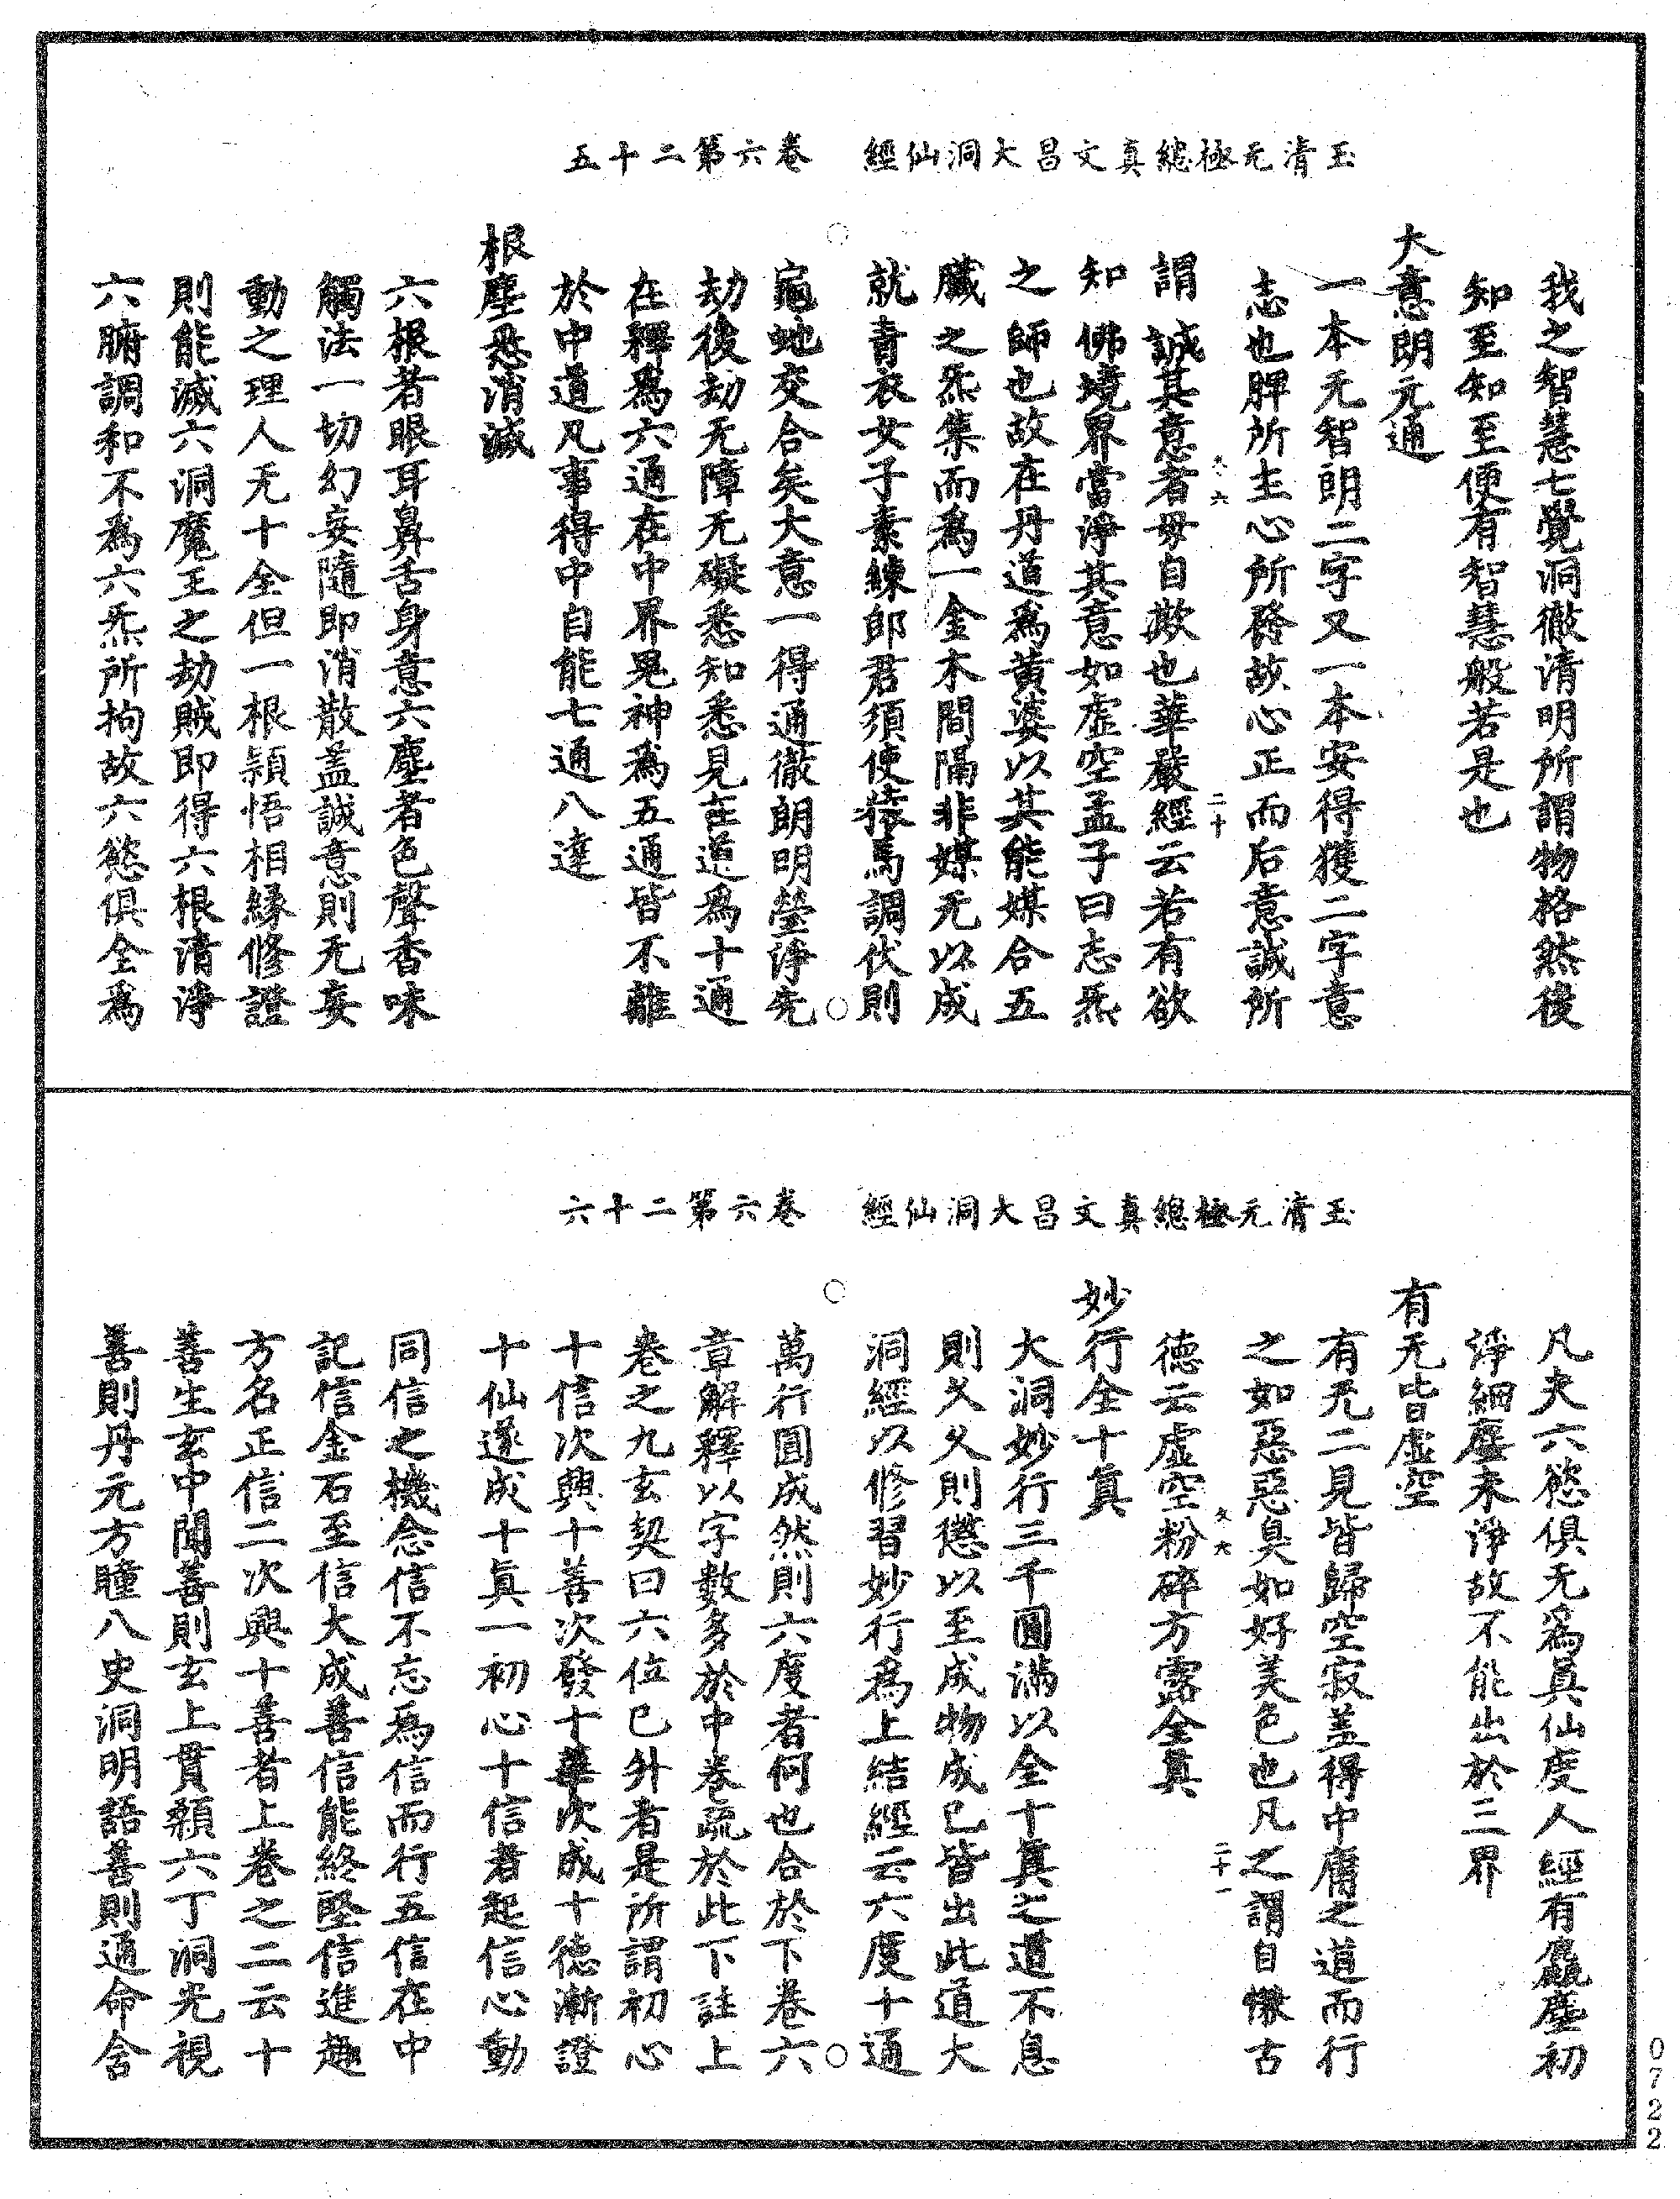 玉清无極總真文昌大洞仙經　卷六第二十五
我之智慧七覺洞徹清明所謂物格然後
知至知至便有智慧般若是也
大意朗元通
一本无智朗二字又一本安得獲二字意
志也脾所主心所務故心正而后意誠所
謂誠其意者毋自欺也華嚴經云若有欲
知佛境界當淨其意如虛空孟子曰志炁
之師也故在丹道為黃婆以其能媒合五
臟之炁集而為一金木間隔非媒无以成
就青衣女子素練郎君須使猿馬調伏則
龜蛇交合矣大意一得通徹朗明瑩淨先
劫後劫无障无礙悉知悉見在道為十通
在釋為六通在中界鬼神為五通皆不離
於中道凡事得中自能七通八達
根塵悉消滅
六根者眼耳鼻舌身意六塵者色聲香味
觸法一切幻妄隨即消散盖誠意則无妄
動之理人无十全但一根頴悟相緣修證
則能滅六洞魔王之劫賊即得六根清淨
六腑調和不為六炁所拘故六慾俱全為
玉清无極總真文昌大洞仙經　卷六第二十六
凡夫六慾俱无為真仙度人經有麤塵初
淨細塵未淨故不能出於三界
有无皆虛空
有无二見皆歸空寂盖得中庸之道而行
之如惡惡臭如好美色也凡之謂自慊古
德云虛空粉碎方露全真
妙行全十真
大洞妙行三千圓滿以全十真之道不息
則久久則懲以至成物成己皆出此道大
洞經以修習妙行為上結經云六度十通
萬行圓成然則六度者何也合於下卷六
章解釋以字數多於中卷疏於此下註上
卷之九玄契曰六位已外者是所謂初心
十信次興十善次發十華次成十德漸證
十仙遂成十真一初心十信者起信心動
同信之機念信不忘為信而行五信在中
記信金石至信大成善信能終堅信進趣
方名正信二次興十善者上卷之二云十
善生玄中聞善則玄上貫類六丁洞光視
善則丹元方瞳八史洞明語善則通命舍
久六
二十
久六
二十一
0722